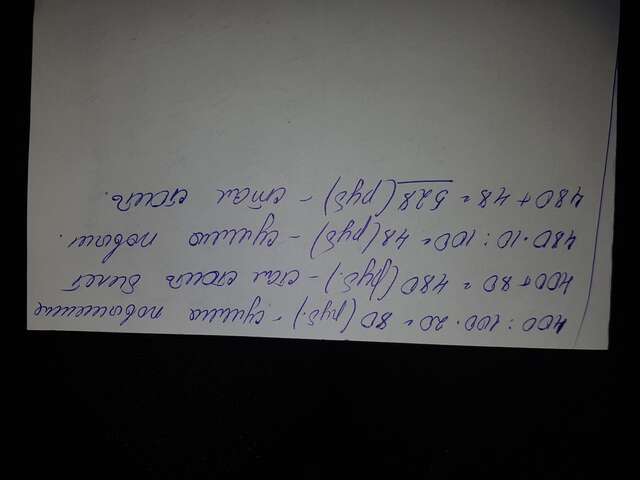 400 : 100 · 20 = 80 (руб.) - сумма повышения
400 + 80 = 480 (руб.) - стал стоить билет
480 · 10 : 100 = 48 (руб) - сумма повыш.
480 + 48 = 528 (руб) - стал стоить.